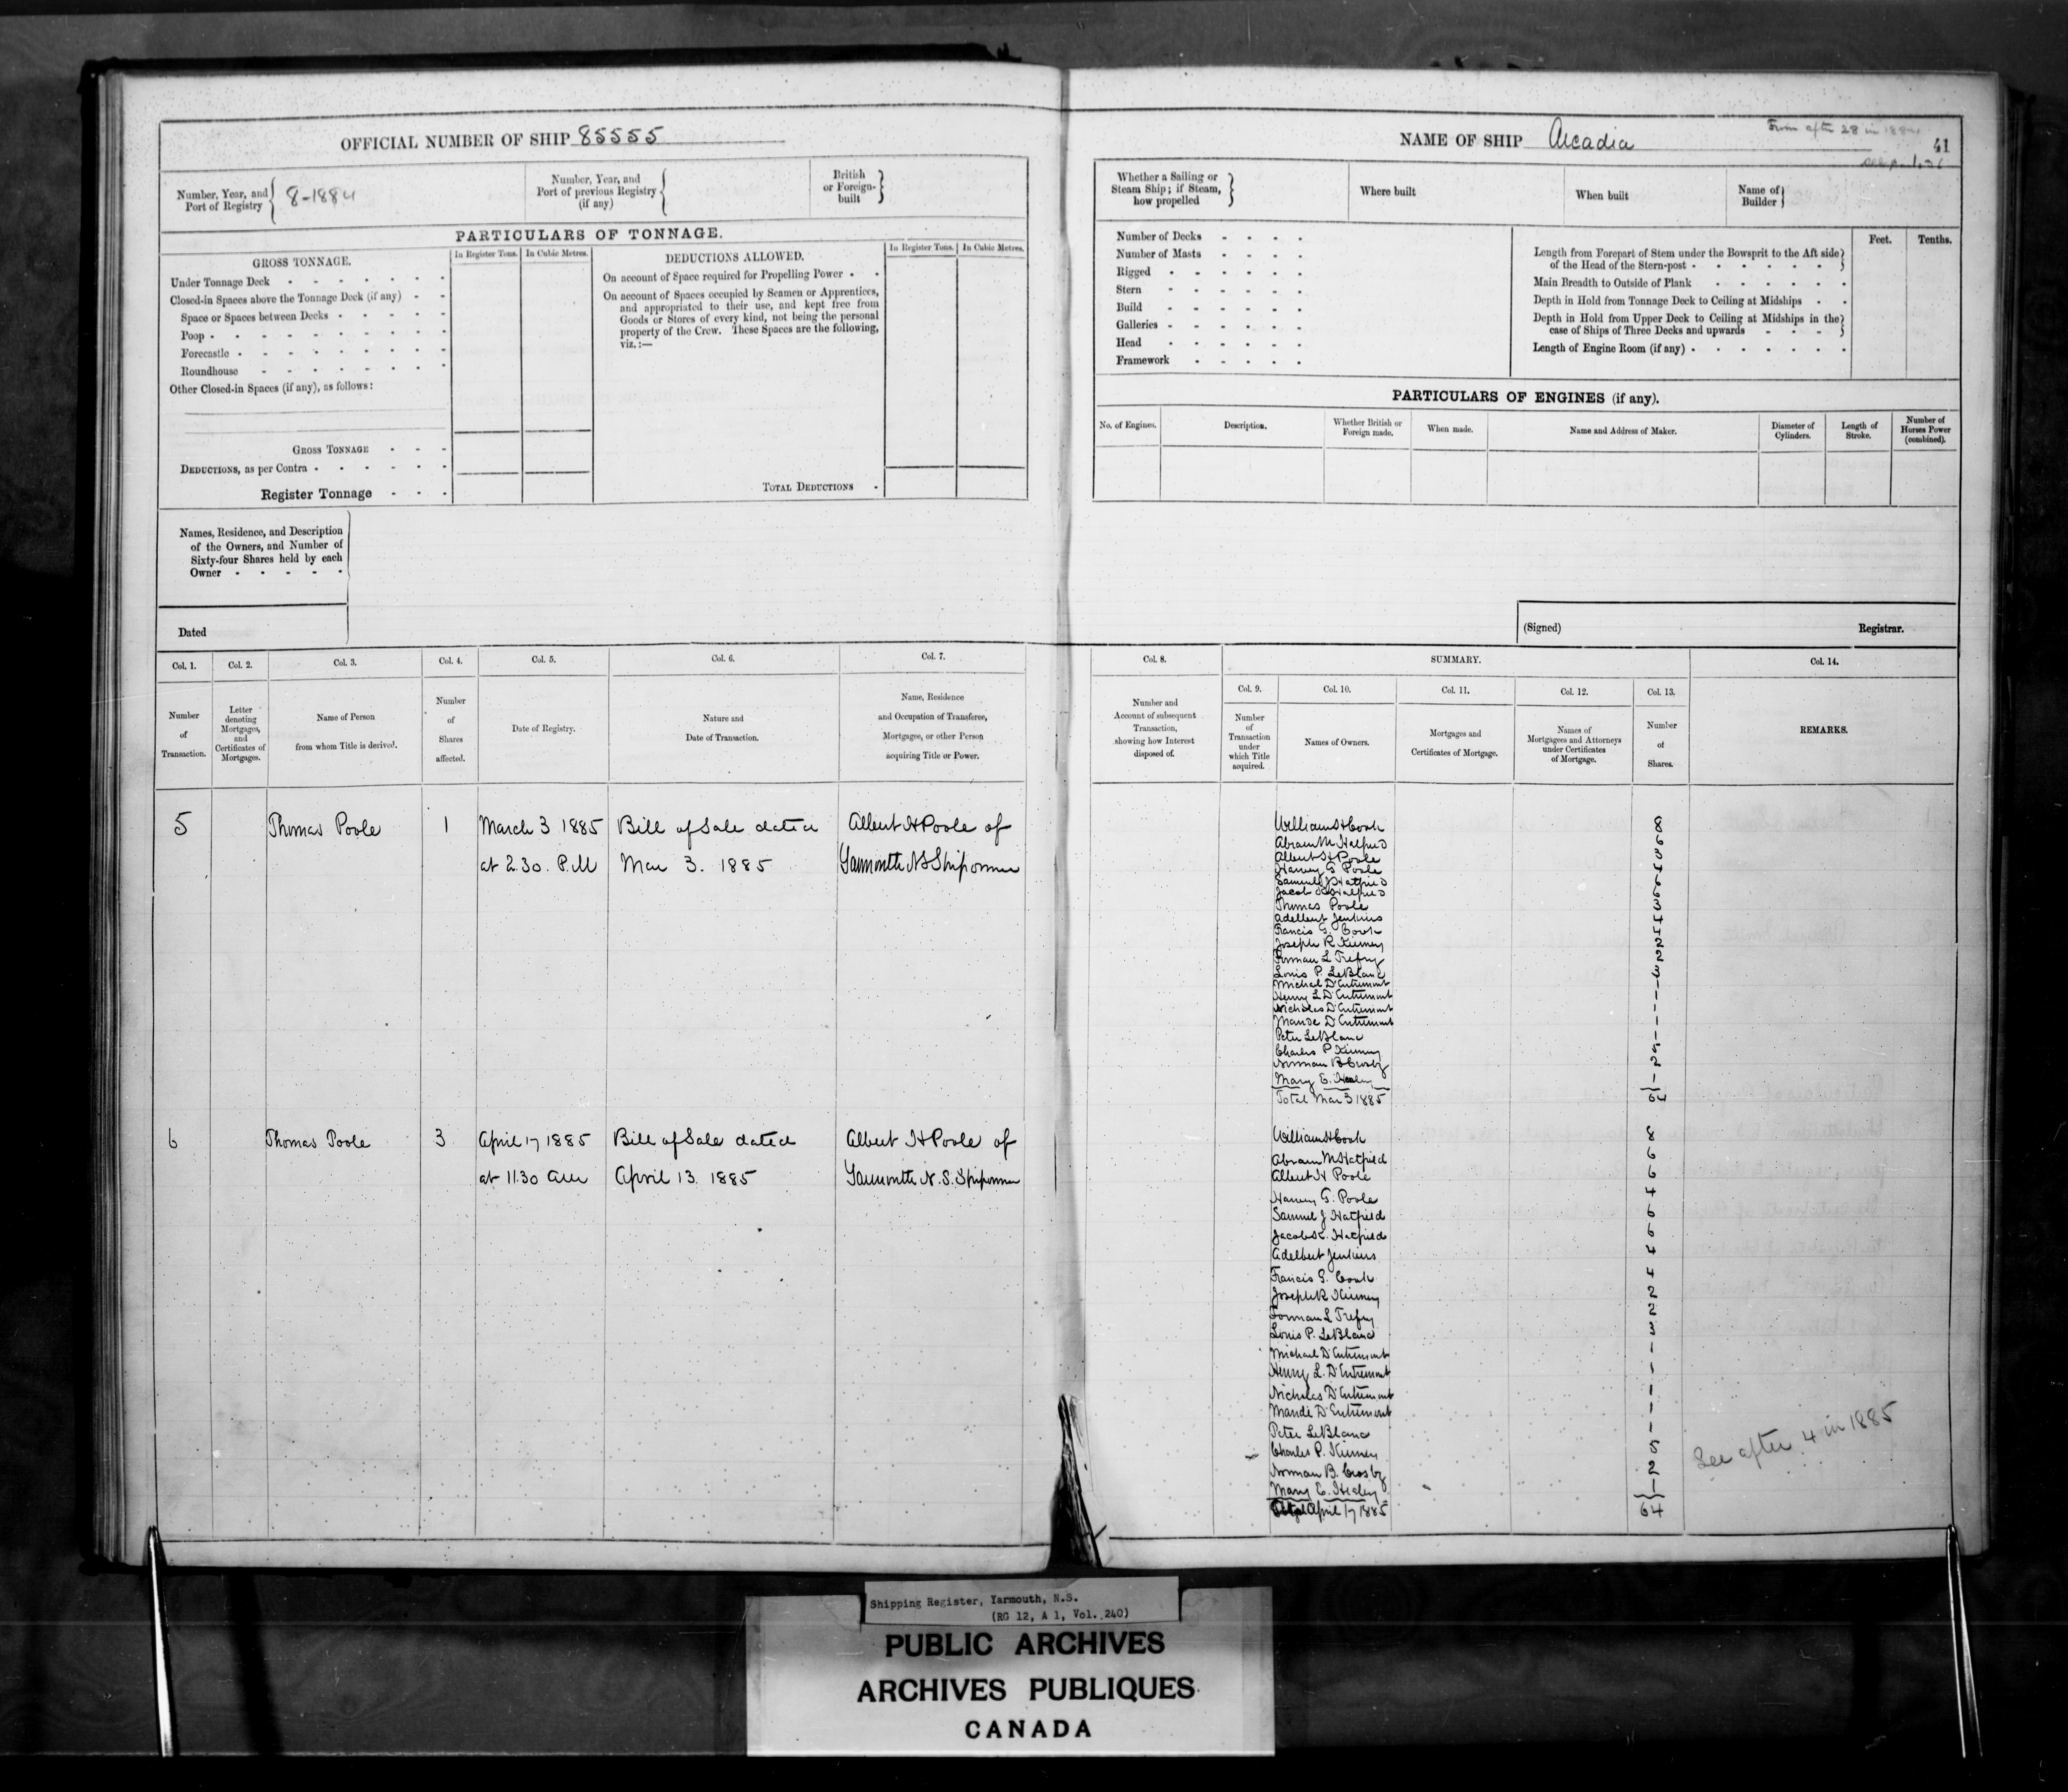 OFFICIAL NUMBER OF SHIP 85555
Number, Year, and
Port of Registry
8-1884
Number, Year, and
Port of previous Registry
(if any)
British
or Foreign-
built
PARTICULARS OF TONNAGE.
GROSS TONNAGE.
In Register Tons.
In Cubic Metres.
Under Tonnage Deck
Closed-in Spaces above the Tonnage Deck (if any)
Space or Spaces between Decks
Poop
Forecastle
Roundhouse
Other Closed-in Spaces (if any), as follows:
GROSS TONNAGE
DEDUCTIONS, as per Contra
Register Tonnage
DEDUCTIONS ALLOWED.
In Register Tons.
In Cubic Metres.
On account of Space required for Propelling Power
On account of Spaces occupied by Seamen or Apprentices,
and appropriated to their use, and kept free from
Goods or Stores of every kind, not being the personal
property of the Crew. These Spaces are the following,
viz.:—
TOTAL DEDUCTIONS
Names, Residence, and Description
of the Owners, and Number of
Sixty-four Shares held by each
Owner
Dated
Col. 1.
Number
of
Transaction.
Col. 2.
Letter
denoting
Mortgages,
and
Certificates of
Mortgages.
Col. 3.
Name of Person
from whom Title is derived.
Col. 4.
Number
of
Shares
affected.
Col. 5.
Date of Registry.
Col. 6.
Nature and
Date of Transaction.
Col. 7.
Name, Residence
and Occupation of Transferee,
Mortgagee, or other Person
acquiring Title or Power.
5 Thomas Poole 1 March 3 1885 Bill of Sale dated Albert H Poole of
at 2.30. P.M Mar 3. 1885 Yarmouth NS Shipowner
6 Thomas Poole 3 April 17 1885 Bill of Sale dated Albert H Poole of
at 11.30 am April 13. 1885 Yarmouth N.S. Shipowner
NAME OF SHIP Arcadia
From after 28 in 1884
41
Whether a Sailing or
Steam Ship; if Steam,
how propelled
Where built
When built
Name of
Builder
Number of Decks
Number of Masts
Rigged
Stern
Build
Galleries
Head
Framework
Feet.
Tenths.
Length from Forepart of Stem under the Bowsprit to the Aft side
of the Head of the Stern-post
Main Breadth to Outside of Plank
Depth in Hold from Tonnage Deck to Ceiling at Midships
Depth in Hold from Upper Deck to Ceiling at Midships in the
case of Ships of Three Decks and upwards
Length of Engine Room (if any)
PARTICULARS OF ENGINES (if any).
No. of Engines.
Description.
Whether British or
Foreign made.
When made.
Name and Address of Maker.
Diameter of
Cylinders.
Length of
Stroke.
Number of
Horses Power
(combined).
(Signed)
Registrar.
Col. 8.
Number and
Account of subsequent
Transaction,
showing how Interest
disposed of.
SUMMARY.
Col. 9.
Number
of
Transaction
under
which Title
acquired.
Col. 10.
Names of Owners.
Col. 11.
Mortgages and
Certificates of Mortgage.
Col. 12.
Names of
Mortgagees and Attorneys
under Certificates
of Mortgage.
Col. 13.
Number
of
Shares.
Col. 14.
REMARKS.
William H Cook 8
Abram M Hatfield 6
Albert H Poole 3
Harvey G Poole 4
Samuel J Hatfield 6
Jacob K Hatfield 6
Thomas Poole 3
Adelbert Jenkins 4
Francis G. Cook 4
Joseph R Kinney 2
Forman L Trefry 2
Louis P. LeBlanc 3
Michael D'Entremont 1
Henry L D'Entremont 1
Nicholas D'Entremont 1
Mande D'Entremont 1
Peter LeBlanc 1
Charles P Kinney 5
Norman B Crosby 2
Mary E. Healey 1
Total Mar 3 1885 64
William H Cook 8
Abram M Hatfield 6
Albert H Poole 6
Harvey G. Poole 4
Samuel J Hatfield 6
Jacob K. Hatfield 6
Adelbert Jenkins 4
Francis G. Cook 4
Joseph R Kinney 2
Forman L Trefry 2
Louis P. LeBlanc 3
Michael D'Entremont 1
Henry L. D'Entremont 1
Nicholas D'Entremont 1
Mande D'Entremont 1
Peter LeBlanc 1
Charles P. Kinney 5
Norman B. Crosby 2
Mary E. Healey 1
Total April 17 1885 64
See after 4 in 1885
Shipping Register, Yarmouth, N.S.
(RG 12, A 1, Vol. 240)
PUBLIC ARCHIVES
ARCHIVES PUBLIQUES
CANADA